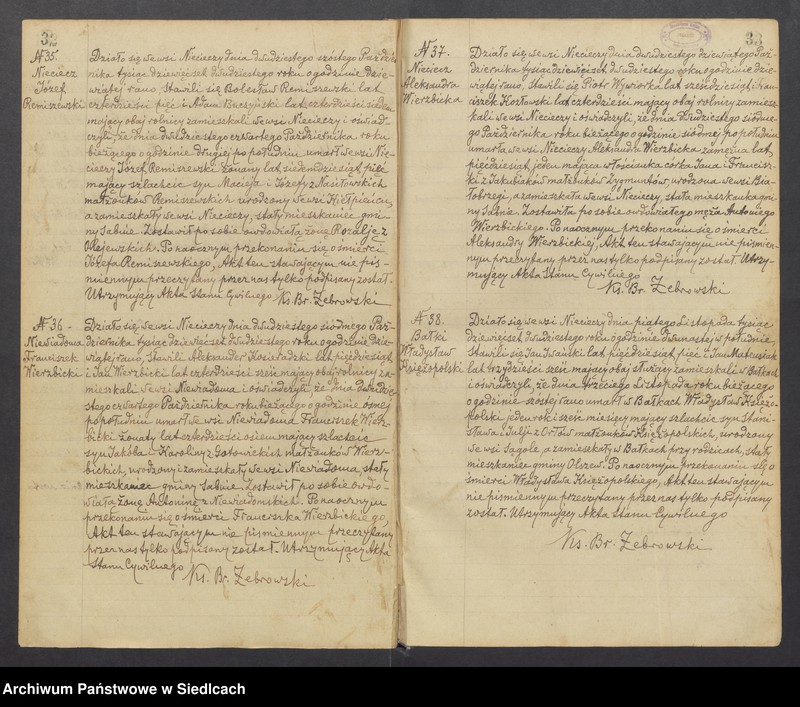 32
№ 35.
Nieciecz
Józef
Remiszewski
Działo się we wsi Niecieczy dnia dwudziestego szóstego Paździer-
nika tysiąc dziewięćset dwudziestego roku o godzinie dzie-
wiątej rano, Stawili się Bolesław Remiszewski lat
czterdzieści pięć i Adam Buczyński lat czterdzieści siedem
mający obaj rolnicy zamieszkali we wsi Niecieczy i oświad-
czyli, że dnia dwudziestego czwartego Października roku
bieżącego o godzinie drugiej po południu umarł we wsi Nie-
cieczy Józef Remiszewski żonaty lat siedemdziesiąt pięć
mający szlachcic syn Macieja i Józefy z Nasiłowskich
małżonków Remiszewskich urodzony we wsi Kiełpieńcu,
a zamieszkały we wsi Niecieczy, stały mieszkaniec gmi-
ny Sabnie. Zostawił po sobie owdowiałą żonę Rozalję z
Olszewskich. Po naocznym przekonaniu się o śmierci
Józefa Remiszewskiego, Akt ten stawającym nie piś-
miennym przeczytany przez nas tylko podpisany został.
Utrzymujący Akta Stanu Cywilnego Ks. Br. Żebrowski
№ 36.
Niewiadoma
Franciszek
Wierzbicki
Działo się we wsi Niecieczy dnia dwudziestego siódmego Paź-
dziernika tysiąc dziewięćset dwudziestego roku o godzinie dzie-
wiątej rano, Stawili Aleksander Kosieradzki lat pięćdziesiąt
i Jan Wierzbicki lat czterdzieści sześć mający obaj rolnicy za-
mieszkali we wsi Niewiadoma i oświadczyli, że dnia dwudzie-
stego czwartego Października roku bieżącego o godzinie ósmej
po południu umarł we wsi Niewiadoma Franciszek Wierz-
bicki żonaty lat czterdzieści osiem mający szlachcic
syn Jakóba i Karoliny z Gotowickich małżonków Wierz-
bickich, urodzony i zamieszkały we wsi Niewiadoma, stały
mieszkaniec gminy Sabnie. Zostawił po sobie owdo-
wiałą żonę Antoninę z Niewiadomskich. Po naocznym
przekonaniu się o śmierci Franciszka Wierzbickiego,
Akt ten stawającym nie piśmiennym przeczytany
przez nas tylko podpisany został. Utrzymujący Akta
Stanu Cywilnego Ks. Br. Żebrowski
33
№ 37.
Nieciecz
Aleksandra
Wierzbicka
Działo się we wsi Niecieczy dnia dwudziestego dziewiątego Paź-
dziernika tysiąc dziewięćset dwudziestego roku o godzinie dzie-
wiątej rano, Stawili się Piotr Wywiorka lat sześćdziesiąt i Fran-
ciszek Kozłowski lat czterdzieści mający obaj rolnicy zamiesz-
kali we wsi Niecieczy i oświadczyli, że dnia dwudziestego siódme-
go Października roku bieżącego o godzinie siódmej po południu
umarła we wsi Niecieczy Aleksandra Wierzbicka zamężna lat
pięćdziesiąt jeden mająca włościanka córka Jana i Francisz-
ki z Jakubiaków małżonków Zygmuntów, urodzona we wsi Bia-
łobrzegi, a zamieszkała we wsi Niecieczy, stała mieszkanka gmi-
ny Sabnie. Zostawiła po sobie owdowiałego męża Antoniego
Wierzbickiego. Po naocznym przekonaniu się o śmierci
Aleksandry Wierzbickiej, Akt ten stawającym nie piśmien-
nym przeczytany przez nas tylko podpisany został. Utrzy-
mujący Akta Stanu Cywilnego
Ks. Br. Żebrowski
№ 38.
Bałki
Władysław
Księżopolski
Działo się we wsi Niecieczy dnia piątego Listopada tysiąc
dziewięćset dwudziestego roku o godzinie dwunastej w południe,
Stawili się Jan Iwański lat pięćdziesiąt pięć i Jan Mateusiak
lat trzydzieści sześć mający obaj służący zamieszkali w Bałkach
i oświadczyli, że dnia trzeciego Listopada roku bieżącego
o godzinie szóstej rano umarł w Bałkach Władysław Księżo-
polski jeden rok i sześć miesięcy mający szlachcic syn Stani-
sława i Julji z Orłów małżonków Księżopolskich, urodzony
we wsi Jagole, a zamieszkały w Bałkach przy rodzicach, stały
mieszkaniec gminy Olszew. Po naocznym przekonaniu się o
śmierci Władysława Księżopolskiego, Akt ten stawającym
nie piśmiennym przeczytany przez nas tylko podpisany
został. Utrzymujący Akta Stanu Cywilnego
Ks. Br. Żebrowski
Archiwum Państwowe w Siedlcach